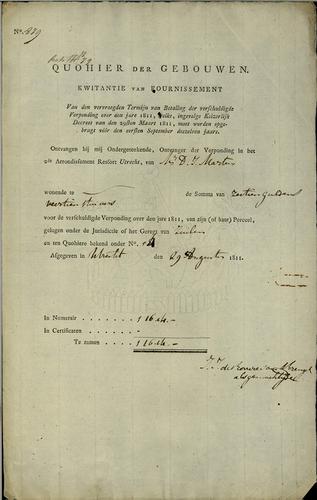 No. 889
QUOHIER DER GEBOUWEN.
KWITANTIE VAN FOURNISSEMENT
Van den vervroegden Termijn van Betaling der verschuldigde
Verponding over den jare 1811, welke, ingevolge Keizerlijk
Decreet van den 29sten Maart 1811, moet worden opge-
bragt vóór den eersten September deszelven jaars.
Ontvangen bij mij Ondergeteekende, Ontvanger der Verponding in het
2de Arrondissement Ressort Utrecht, van D. J. Martens
wonende te de Somma van zestien guldens
veertien stuivers
voor de verschuldigde Verponding over den jare 1811, van zijn (of haar) Perceel,
gelegen onder de Jurisdictie of het Geregt van Zuilen
en ten Quohiere bekend onder No.
Afgegeven in Utrecht den 29 Augustus 1811.
In Numerair . . . . . . . ƒ 16.14.-
In Certificaten . . . . .
Te zamen . . . . ƒ 16.14.-